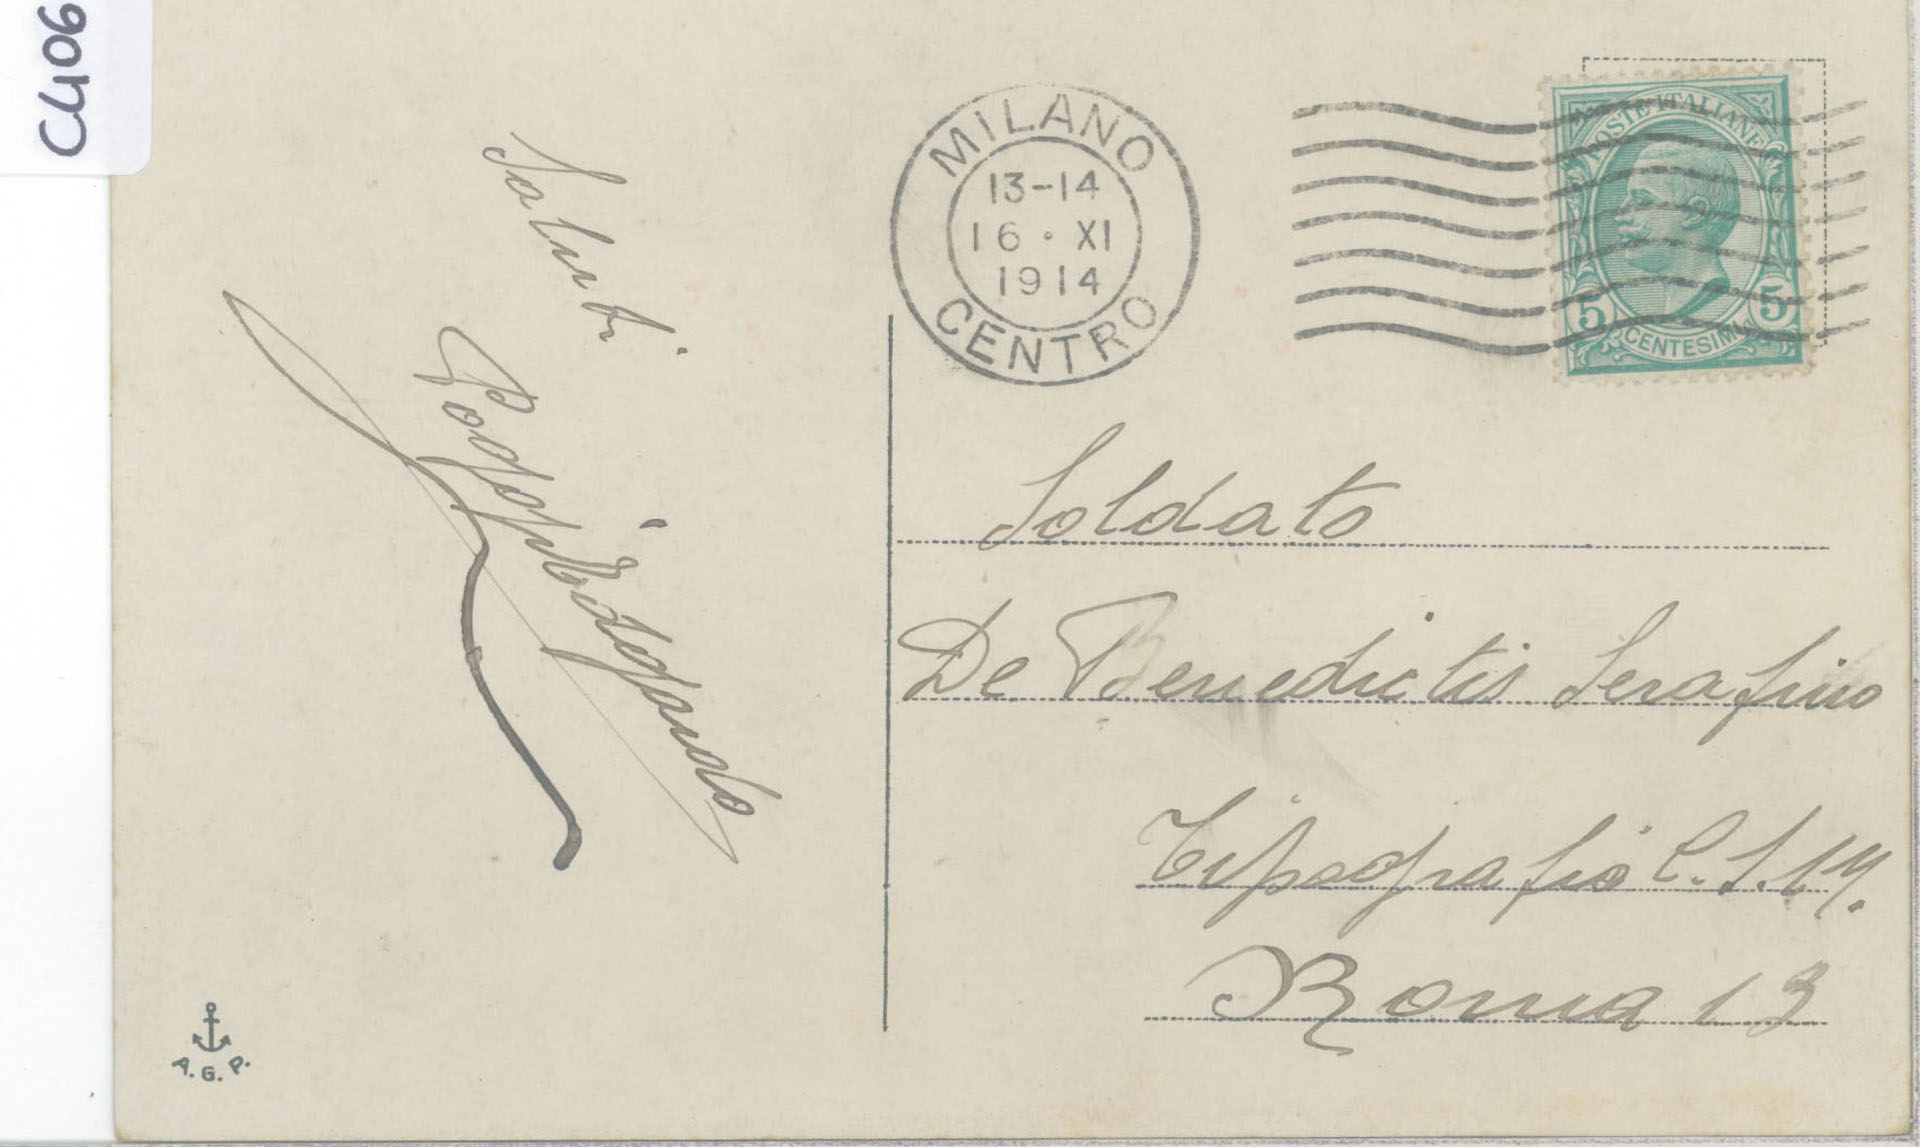 CL406
MILANO
13-14
16 · XI
1914
CENTRO
POSTE ITALIANE
5 5
CENTESIMI
Saluti
Soldato
De Benedictis Serafino
Tipografia C.S.M.
Roma 13
A.G.P.